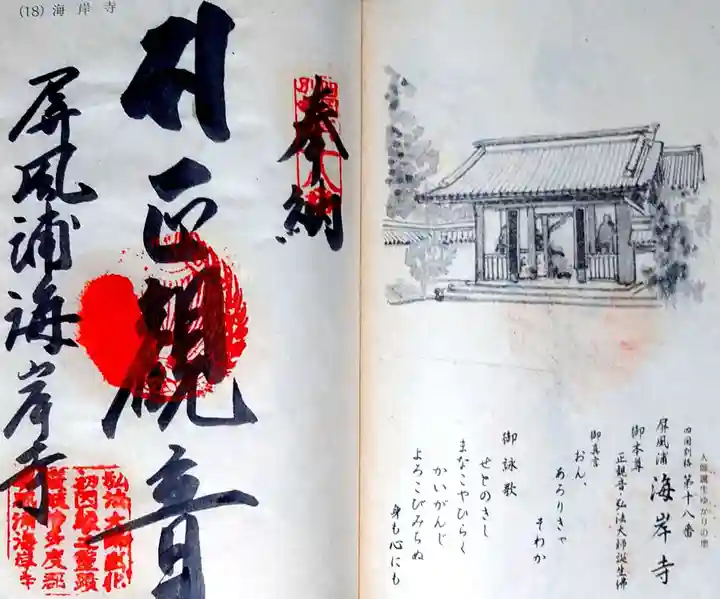 (18) 海岸寺
奉納
正観音
屏風浦海岸寺
大師誕生ゆかりの地
四国別格 第十八番
屏風浦 海岸寺
御本尊
正観音・弘法大師誕生佛
御真言
おん、
あろりきゃ
そわか
御詠歌
せとのきし
まなこやひらく
かいがんじ
よろこびみちぬ
身も心にも